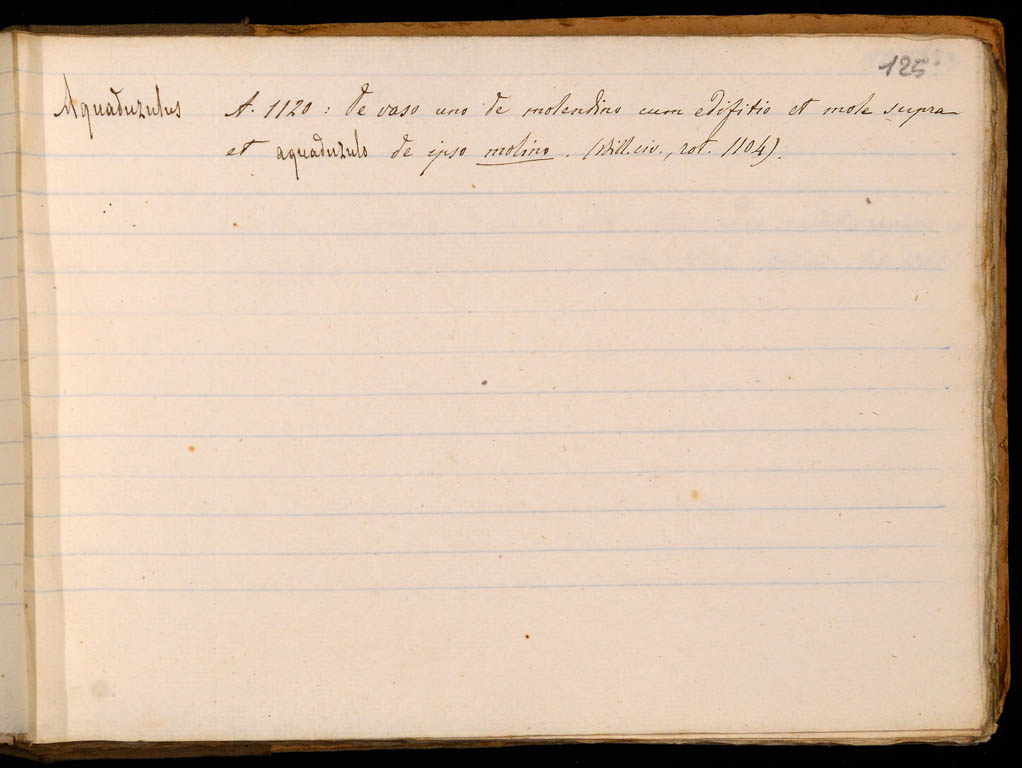 125
Aquaduzulus A. 1120 : de vaso uno de molendino cum edifitio et mole supra
et aquaduzulo de ipso molino. (Bibl. civ., rot. 1104).